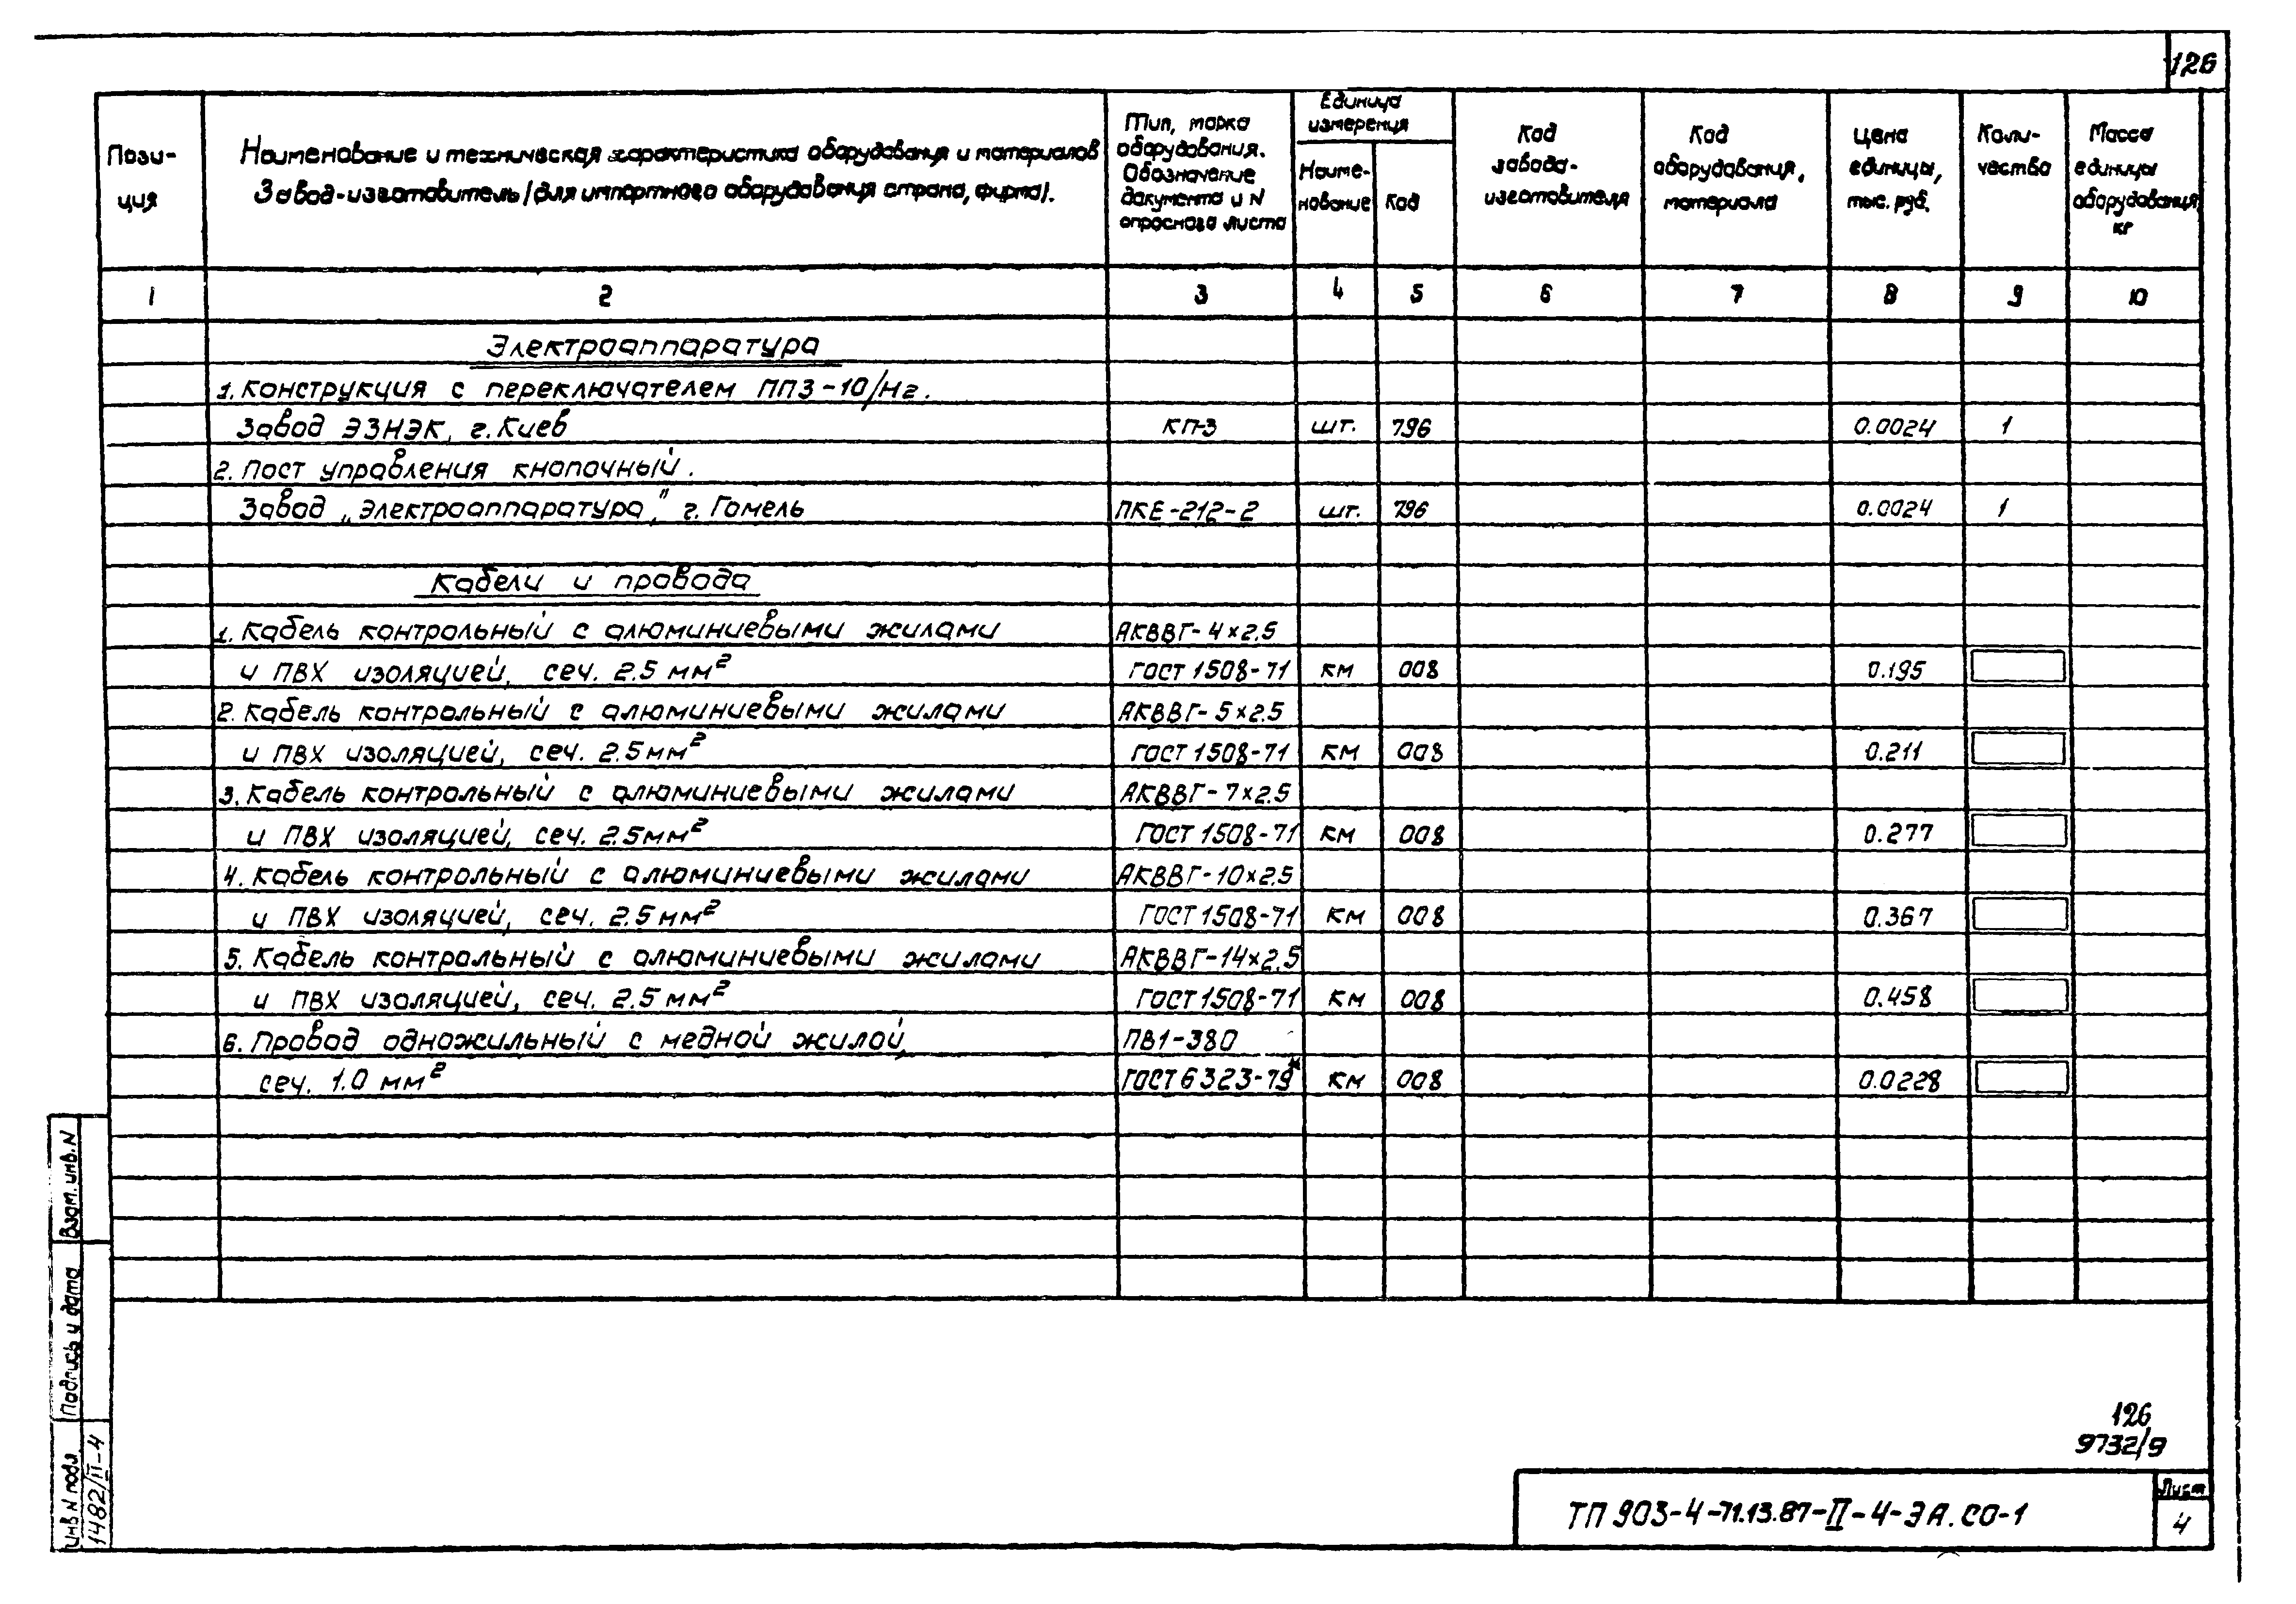 126
Пози-
ция
Наименование и техническая характеристика оборудования и материалов
Завод-изготовитель/для импортного оборудования страна, фирма/.
Тип, марка
оборудования.
Обозначение
документа и N
опросного листа
Единица
измерения
Наиме-
нование
Код
Код
завода-
изготовителя
Код
оборудования,
материала
Цена
единицы,
тыс. руб.
Коли-
чество
Масса
единицы
оборудования,
кг
1 2 3 4 5 6 7 8 9 10
Электроаппаратура
1. Конструкция с переключателем ПП3-10/Н2.
Завод ЭЗНЭК, г. Киев КП-3 шт. 796 0.0024 1
2. Пост управления кнопочный.
Завод „Электроаппаратура," г. Гомель ПКЕ-212-2 шт. 796 0.0024 1
Кабели и провода
1. Кабель контрольный с алюминиевыми жилами АКВВГ-4×2.5
и ПВХ изоляцией, сеч. 2.5 мм² ГОСТ 1508-71 км 008 0.195
2. Кабель контрольный с алюминиевыми жилами АКВВГ-5×2.5
и ПВХ изоляцией, сеч. 2.5 мм² ГОСТ 1508-71 км 008 0.211
3. Кабель контрольный с алюминиевыми жилами АКВВГ-7×2.5
и ПВХ изоляцией, сеч. 2.5 мм² ГОСТ 1508-71 км 008 0.277
4. Кабель контрольный с алюминиевыми жилами АКВВГ-10×2.5
и ПВХ изоляцией, сеч. 2.5 мм² ГОСТ 1508-71 км 008 0.367
5. Кабель контрольный с алюминиевыми жилами АКВВГ-14×2.5
и ПВХ изоляцией, сеч. 2.5 мм² ГОСТ 1508-71 км 008 0.458
6. Провод одножильный с медной жилой, ПВ1-380
сеч. 1.0 мм² ГОСТ 6323-79* км 008 0.0228
Взам. инв. N
Подпись и дата
Инв N подл.
1482/II-4
126
9732/9
ТП 903-4-71.13.87-II-4-ЭА.СО-1
Лист
4